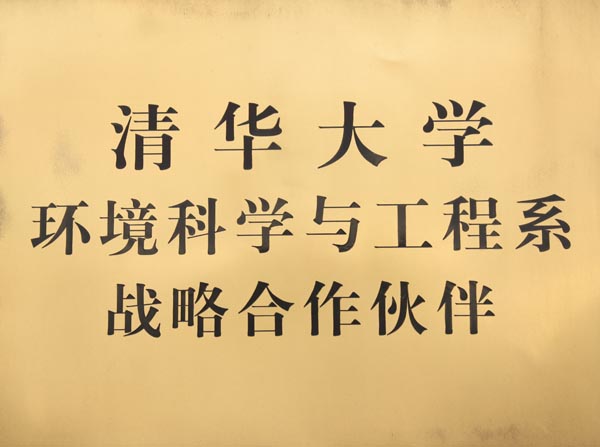 清华大学
环境科学与工程系
战略合作伙伴